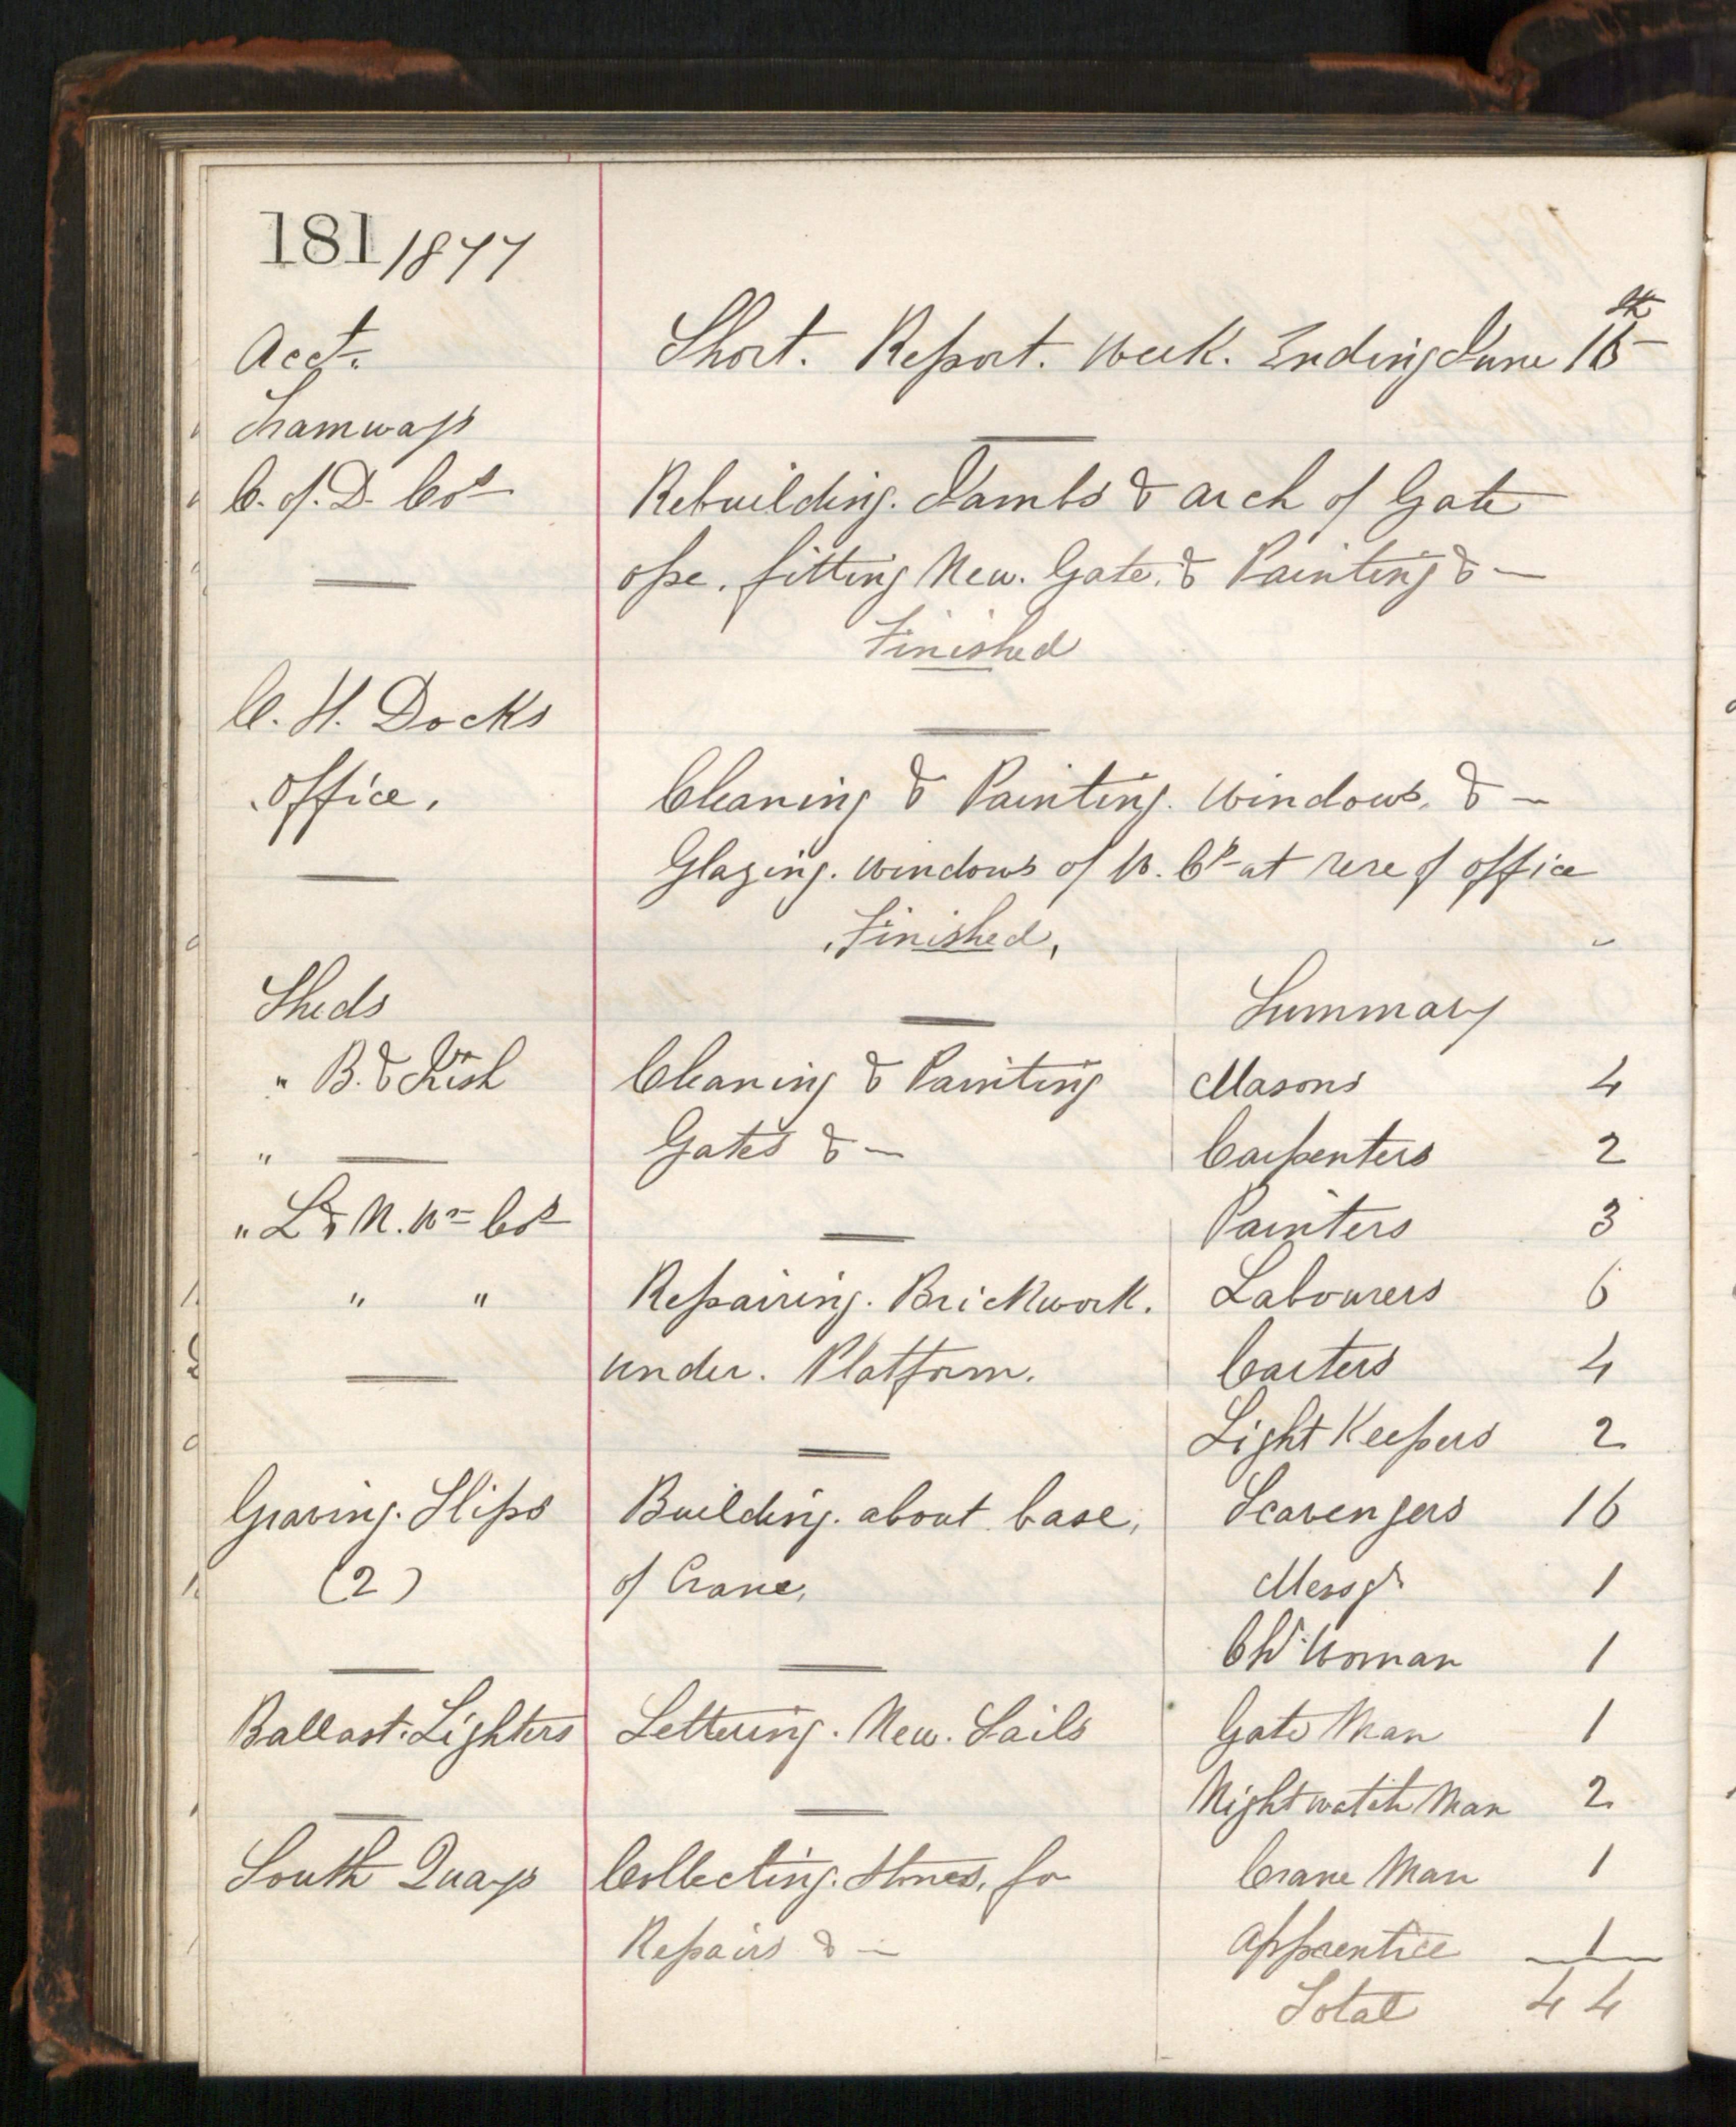 181 1877
Acct. Short. Report. Week. Ending June 16th
Tramways
C. of. D. Cos Rebuilding. Jambs & arch of Gate
ope. fitting New. Gate. & Painting & —
Finished
C. H. Docks
Office. Cleaning & Painting. Windows. & —
Glazing. windows of W. Cs at rere of office
Finished.
Sheds
Summary
" B. & Irish Cleaning & Painting
Masons 4
" Gates & —
Carpenters 2
" L & N. Wn Cos
Painters 3
" " Repairing. Brickwork.
Labourers 6
under. Platform.
Carters 4
Light Keepers 2
Graving. Slips Building. about base,
Scavengers 16
(2) of Crane,
Messgr 1
Woman 1
Ballast. Lighters Lettering. New. Sails
Gate Man 1
Night watch Man 2
South Quays Collecting. Stones, for
Crane Man 1
Repairs & —
Apprentice 1
Total 44